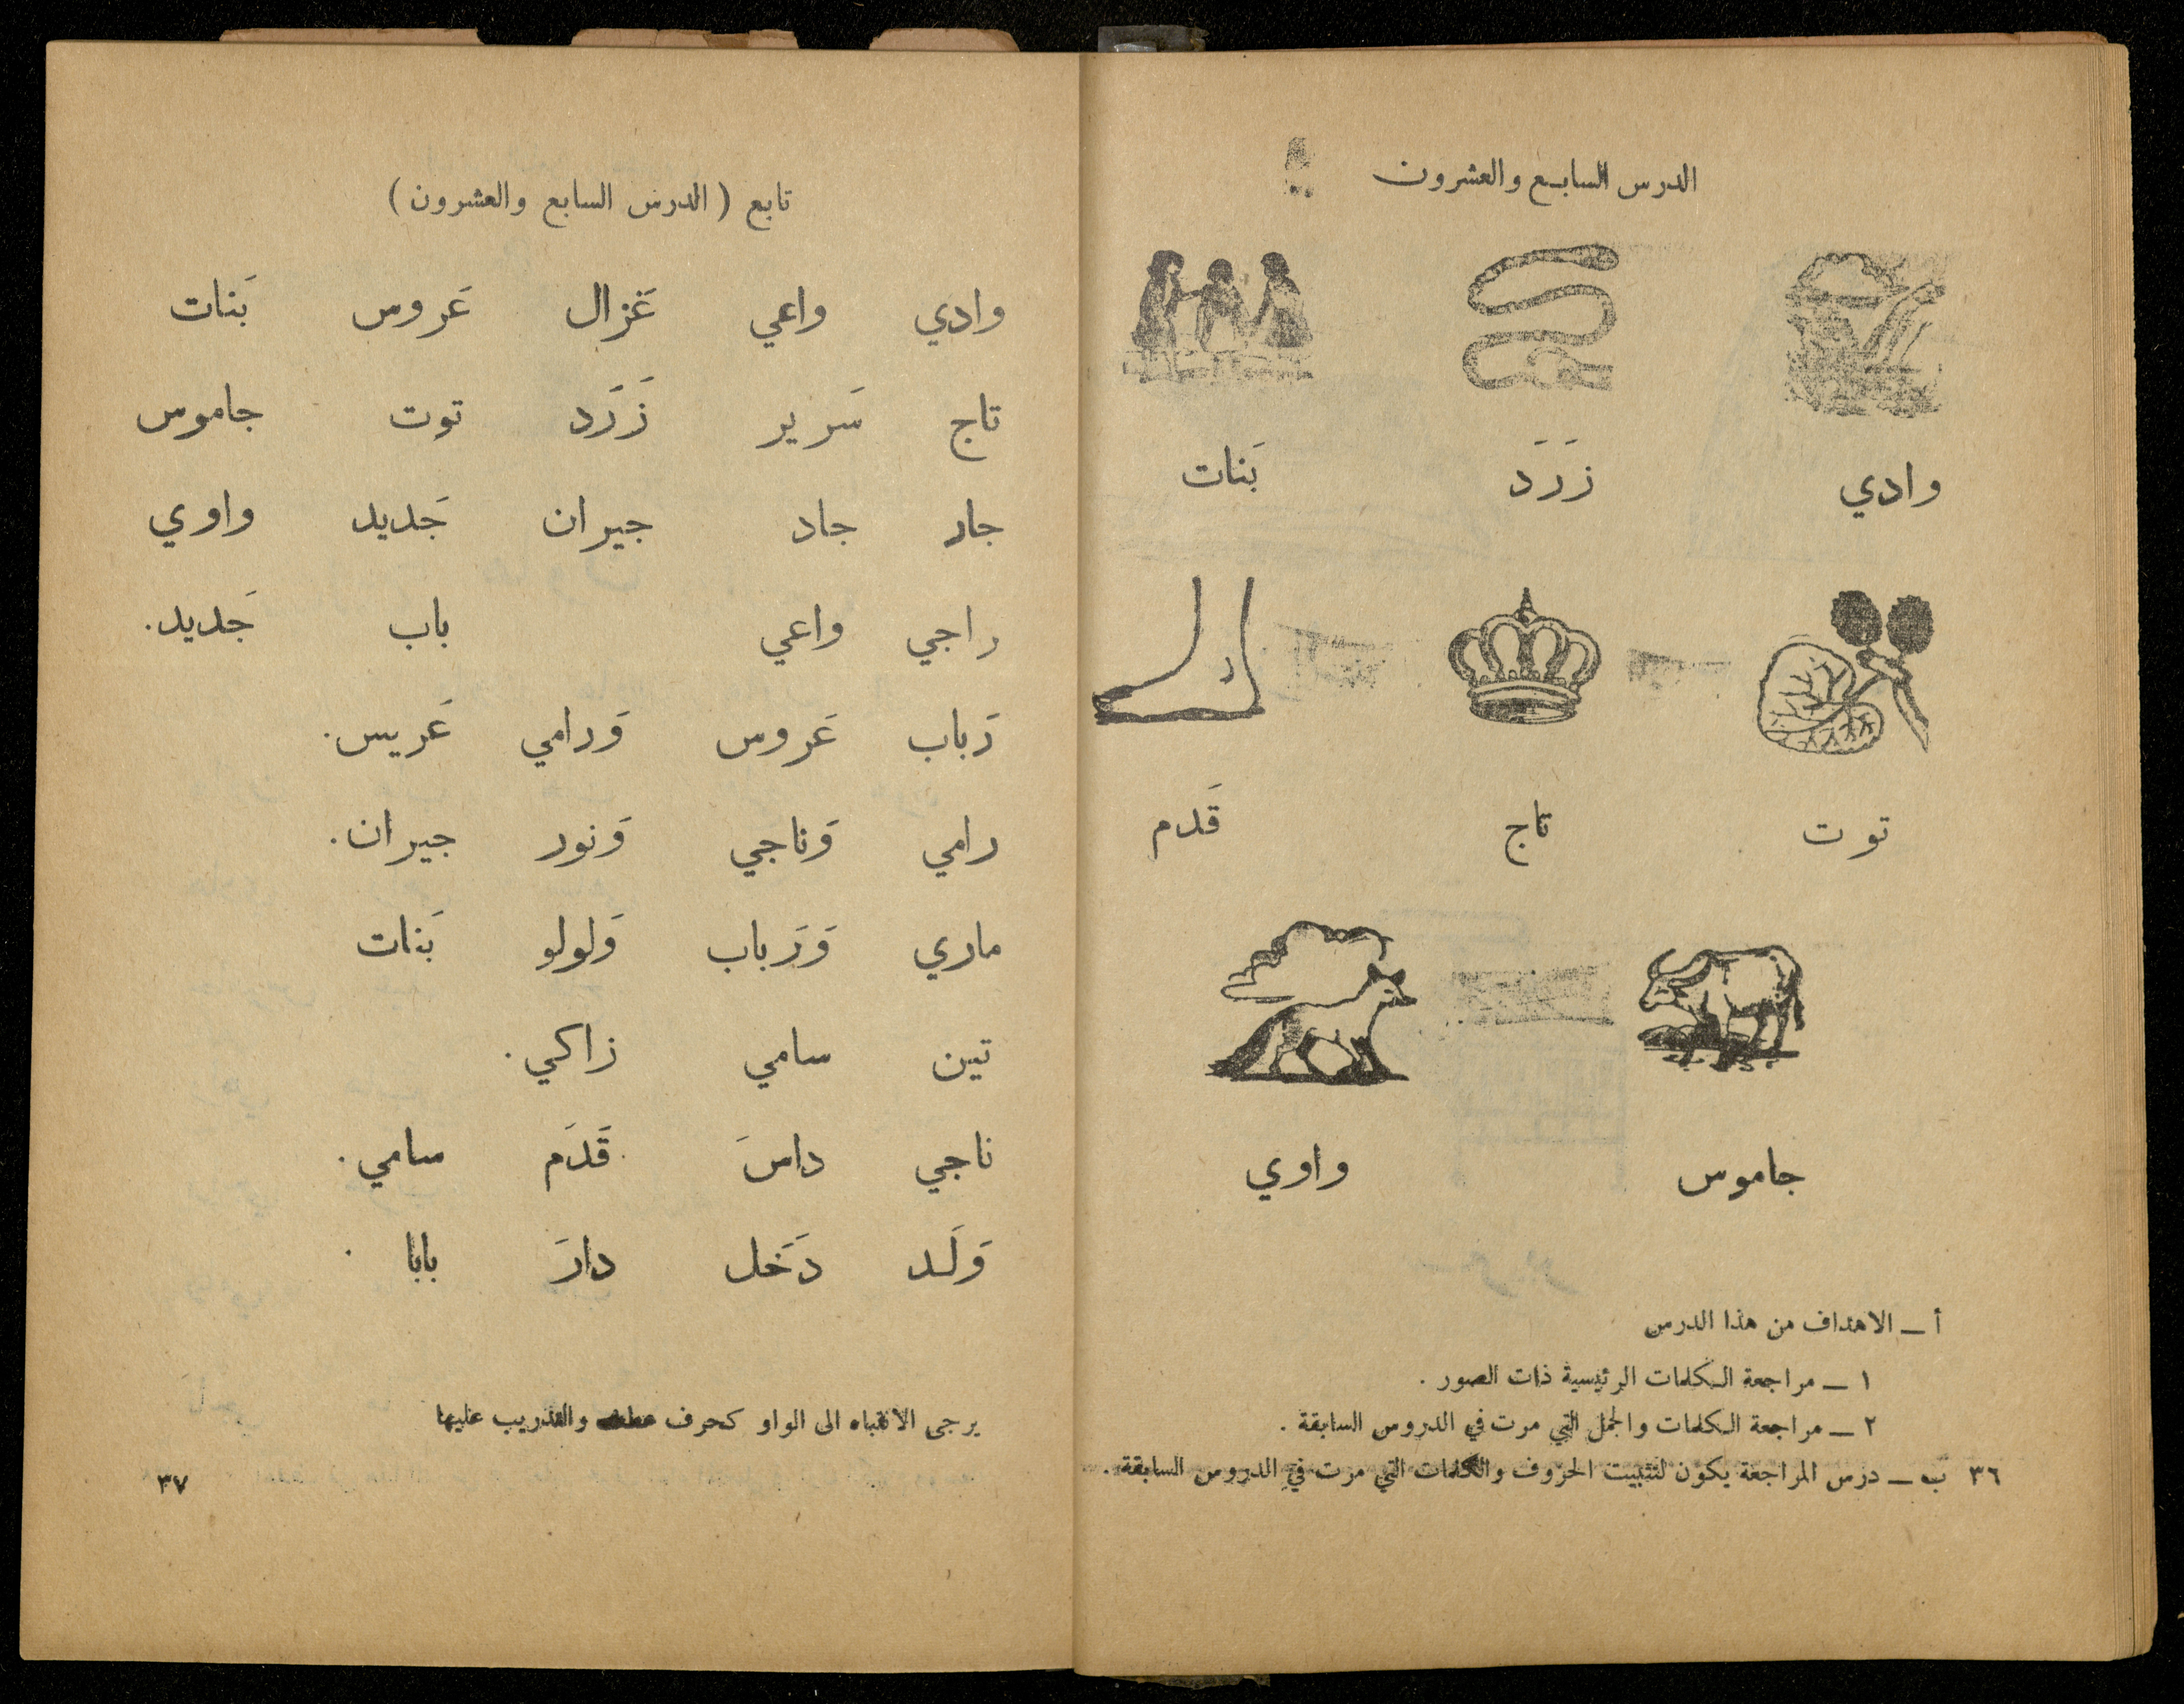 الدرس السابع والعشرون
وادي زَرَد بَنات
توت تاج قَدم
جاموس واوي
أ ــ الاهداف من هذا الدرس
١ ــ مراجعة الكلمات الرئيسية ذات الصور .
٢ ــ مراجعة الكلمات والجمل التي مرت في الدروس السابقة .
٣٦ ب ــ درس المراجعة يكون لتثبيت الحروف والكلمات التي مرت في الدروس السابقة .
تابع ( الدرس السابع والعشرون )
وادي واعي غَزال عَروس بَنات
تاج سَرير زَرَد توت جاموس
جار جاد جيران جَديد واوي
راجي واعي باب جَديد.
رَباب عَروس وَرامي عَريس.
رامي وَناجي وَنور جيران.
ماري وَرَباب وَلولو بَنات
تين سامي زاكي.
ناجي داسَ قَدَم سامي.
وَلَد دَخَل دارَ بابا .
يرجى الانتباه الى الواو كحرف عطف والتدريب عليها
٣٧